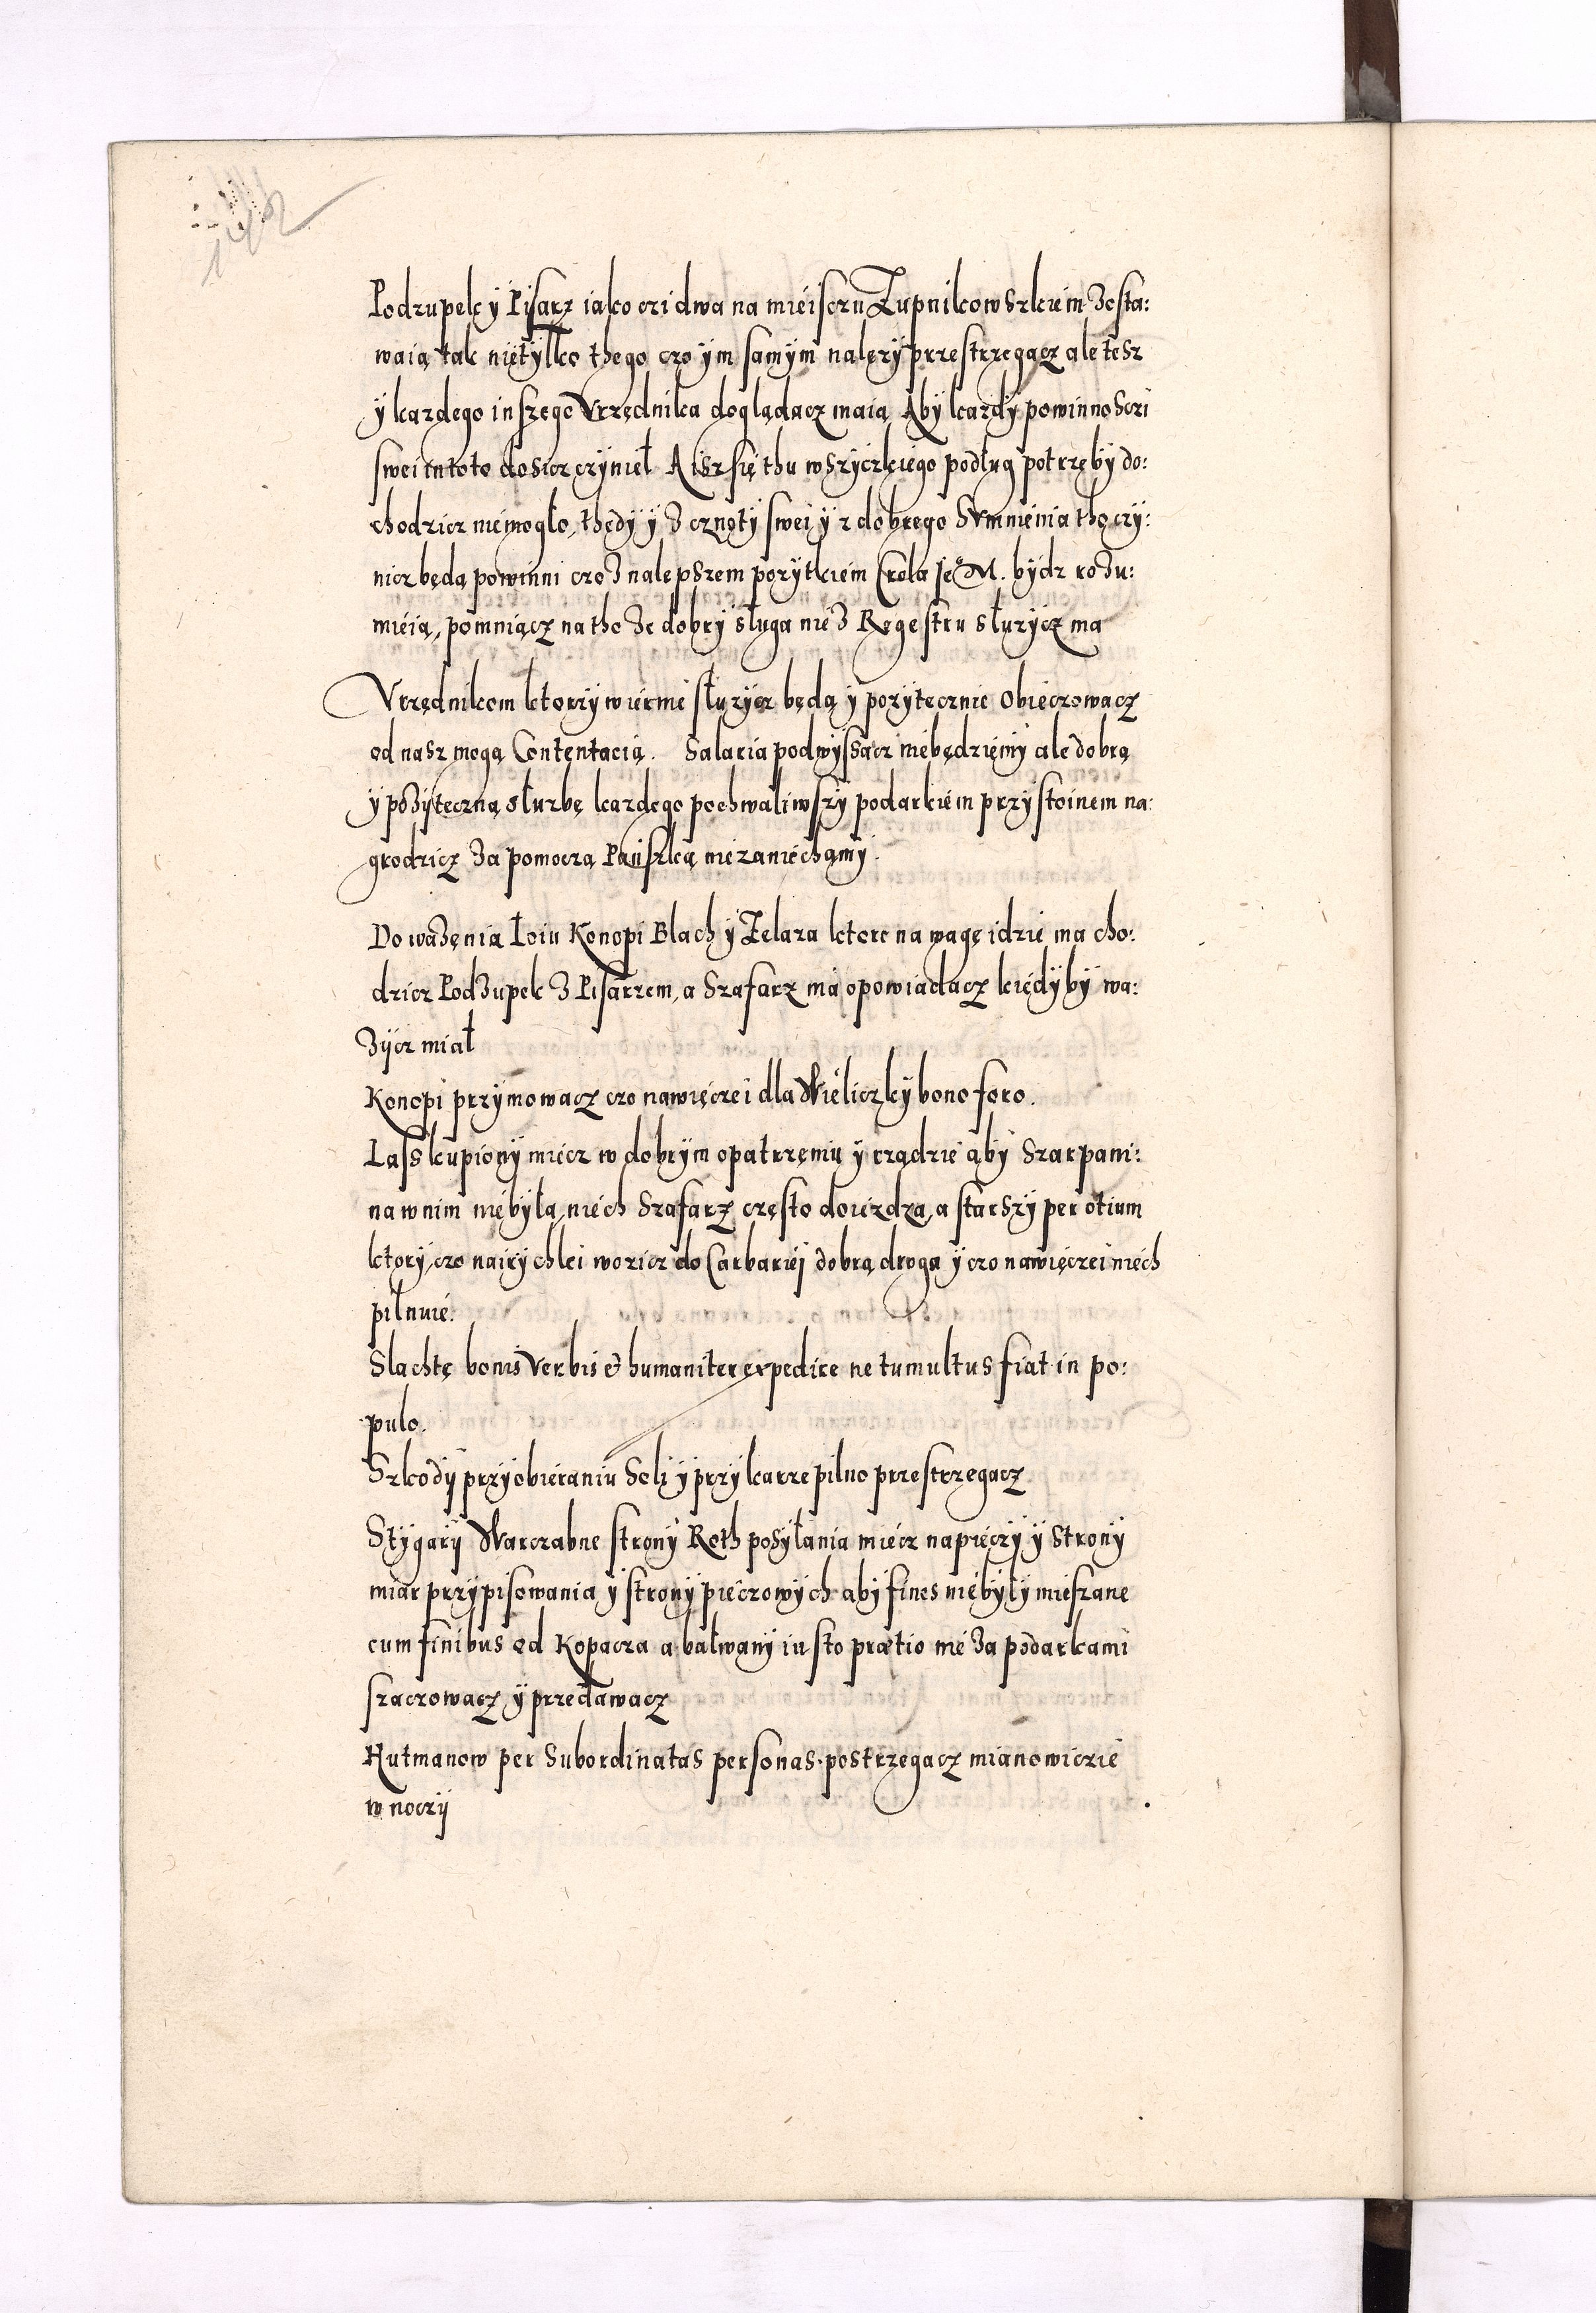 Podzupek y Pisarz iako czi dwa na mieisczu Zupnikowszkiem zosta:
waią tak nietylko thego czo ym samym nalezy przestrzegacz ale tesz
y kazdego inszego Vrzędnika doglądacz maią Aby kazdy powinnosczi
swei in toto dosicz czynieł A isz się thu wszyczkiego podług potrzeby do:
chodzicz niemogło, thedy y z cznoty swei y z dobrego Sumnienia tho czy:
nicz będą powinni czo z nalepszem pozytkiem Crola Je° M. bydz rozu:
mieią, pomniącz na tho ze dobry sługa nie z Regestru słuzycz ma
Vrzędnikom ktorzy wiernie słuzycz będą y pozytecznie obieczowacz
od nasz mogą Contentacią. Salaria podwyssacz niebędziemy ale dobrą
y pozyteczną słuzbę kazdego pochwaliwszy podarkiem przystoinem na:
grodzicz za pomoczą Pańszką niezaniechamy.
Do wazenia Łoiu Konopi Blach y Zelaza ktore na wagę idzie ma cho:
dzicz Podzupek z Pisarzem, a Szafarz ma opowiadacz kiedy by wa:
zycz miał
Konopi przymowacz czo nawięczei dla Wieliczky bono foro.
Lass kupiony miecz w dobrym opatrzeniu y rządzie aby Szarpani:
na w nim niebyła, niech Szafarz często doiezdza, a starszy per otium
ktory, czo nairychlei wozicz do Carbariei dobrą drogą y czo nawięczei niech
pilnuie.
Slachtę bonis verbis & humaniter expedire ne tumultus fiat in po:
pulo.
Szkody przy obieraniu Soli y przy karze pilno przestrzegacz
Stygary Warczabne strony Roth posyłania miecz na pieczy y strony
miar przypisowania y strony pieczowych aby fines niebyły mieszane
cum finibus od Kopacza a bałwany iusto prætio nie za podarkami
szaczowacz y przedawacz
Hutmanow per Subordinatas personas postrzegacz mianowiczie
w noczy